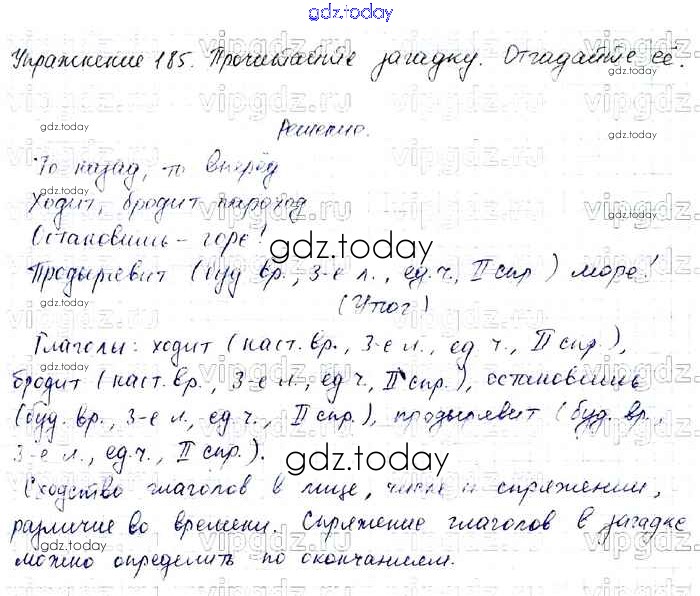 gdz.today
Упражнение 185. Прочитайте загадку. Отгадайте её.
Решение.
То назад, то вперёд
Ходит, бродит пароход
Остановишь - горе!
gdz.today
Продырявит (буд вр., 3-е л., ед.ч., II спр ) море!
(Утюг)
Глаголы: ходит (наст. вр., 3-е л., ед ч., II спр.),
бродит (наст. вр., 3-е л., ед ч., II спр.), остановишь
(буд. вр., 3-е л., ед.ч., II спр.), продырявит (буд. вр.,
3-е л., ед.ч., II спр.).
gdz.today
Сходство глаголов в лице, числе и спряжении,
различие во времени. Спряжение глаголов в загадке
можно определить по окончаниям.